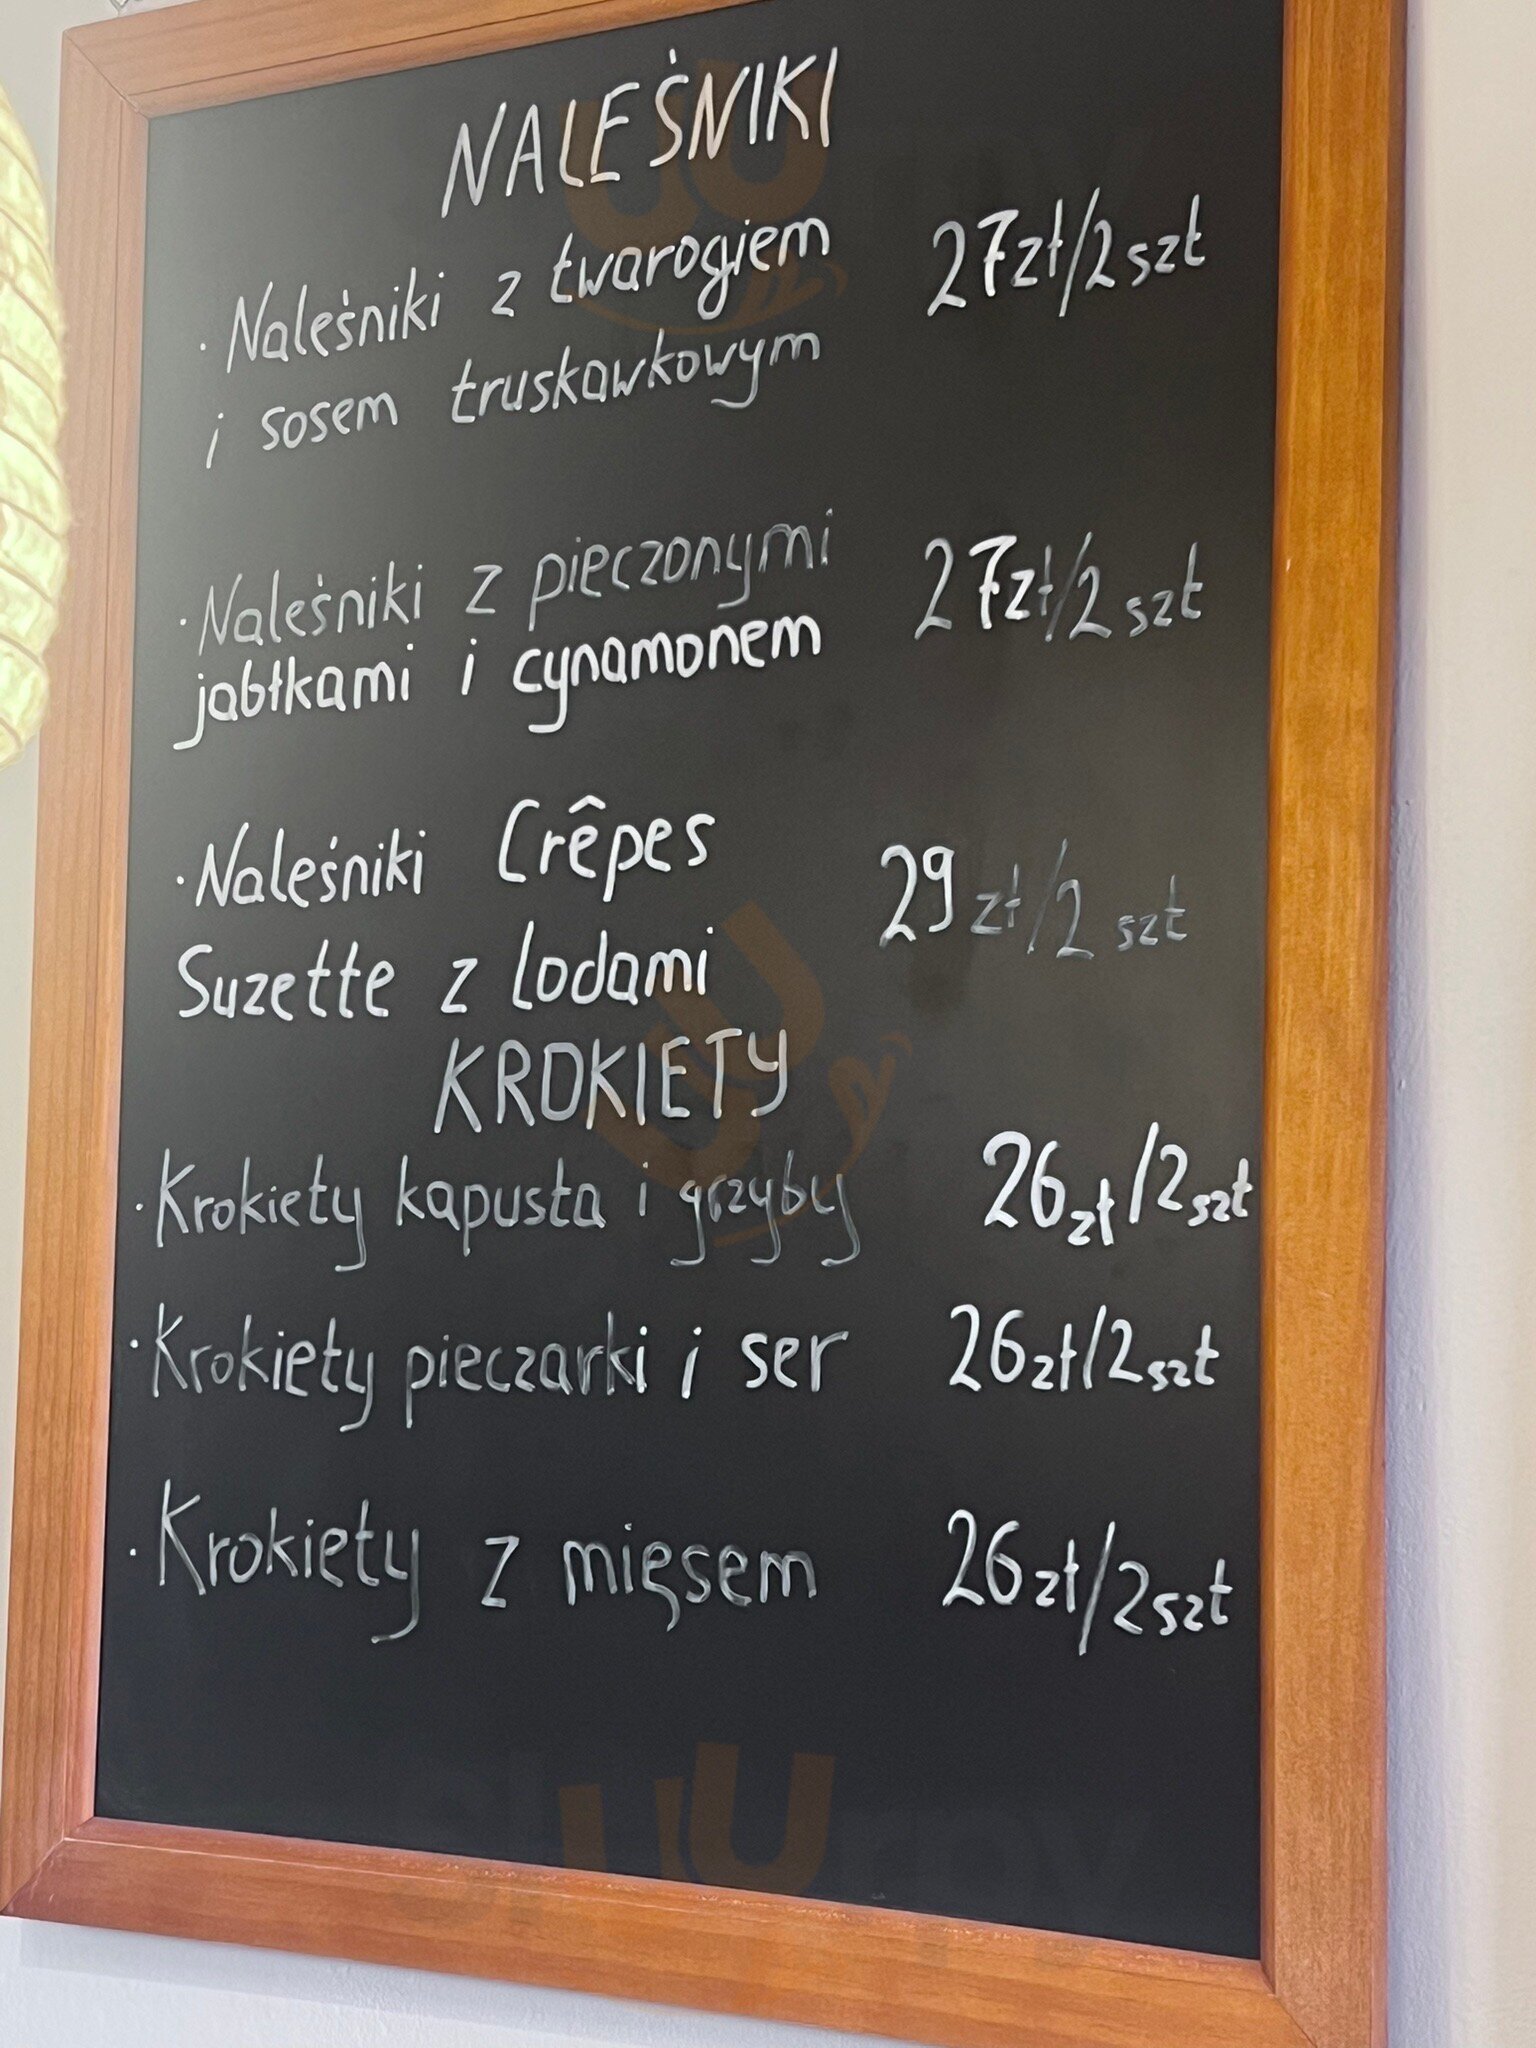 NALEŚNIKI
· Naleśniki z twarogiem 27zł/2szt
i sosem truskawkowym
· Naleśniki z pieczonymi 27zł/2 szt
jabłkami i cynamonem
· Naleśniki Crêpes 29 zł/2 szt
Suzette z lodami
KROKIETY
· Krokiety kapusta i grzyby 26zł/2szt
· Krokiety pieczarki i ser 26zł/2szt
· Krokiety z mięsem 26zł/2szt